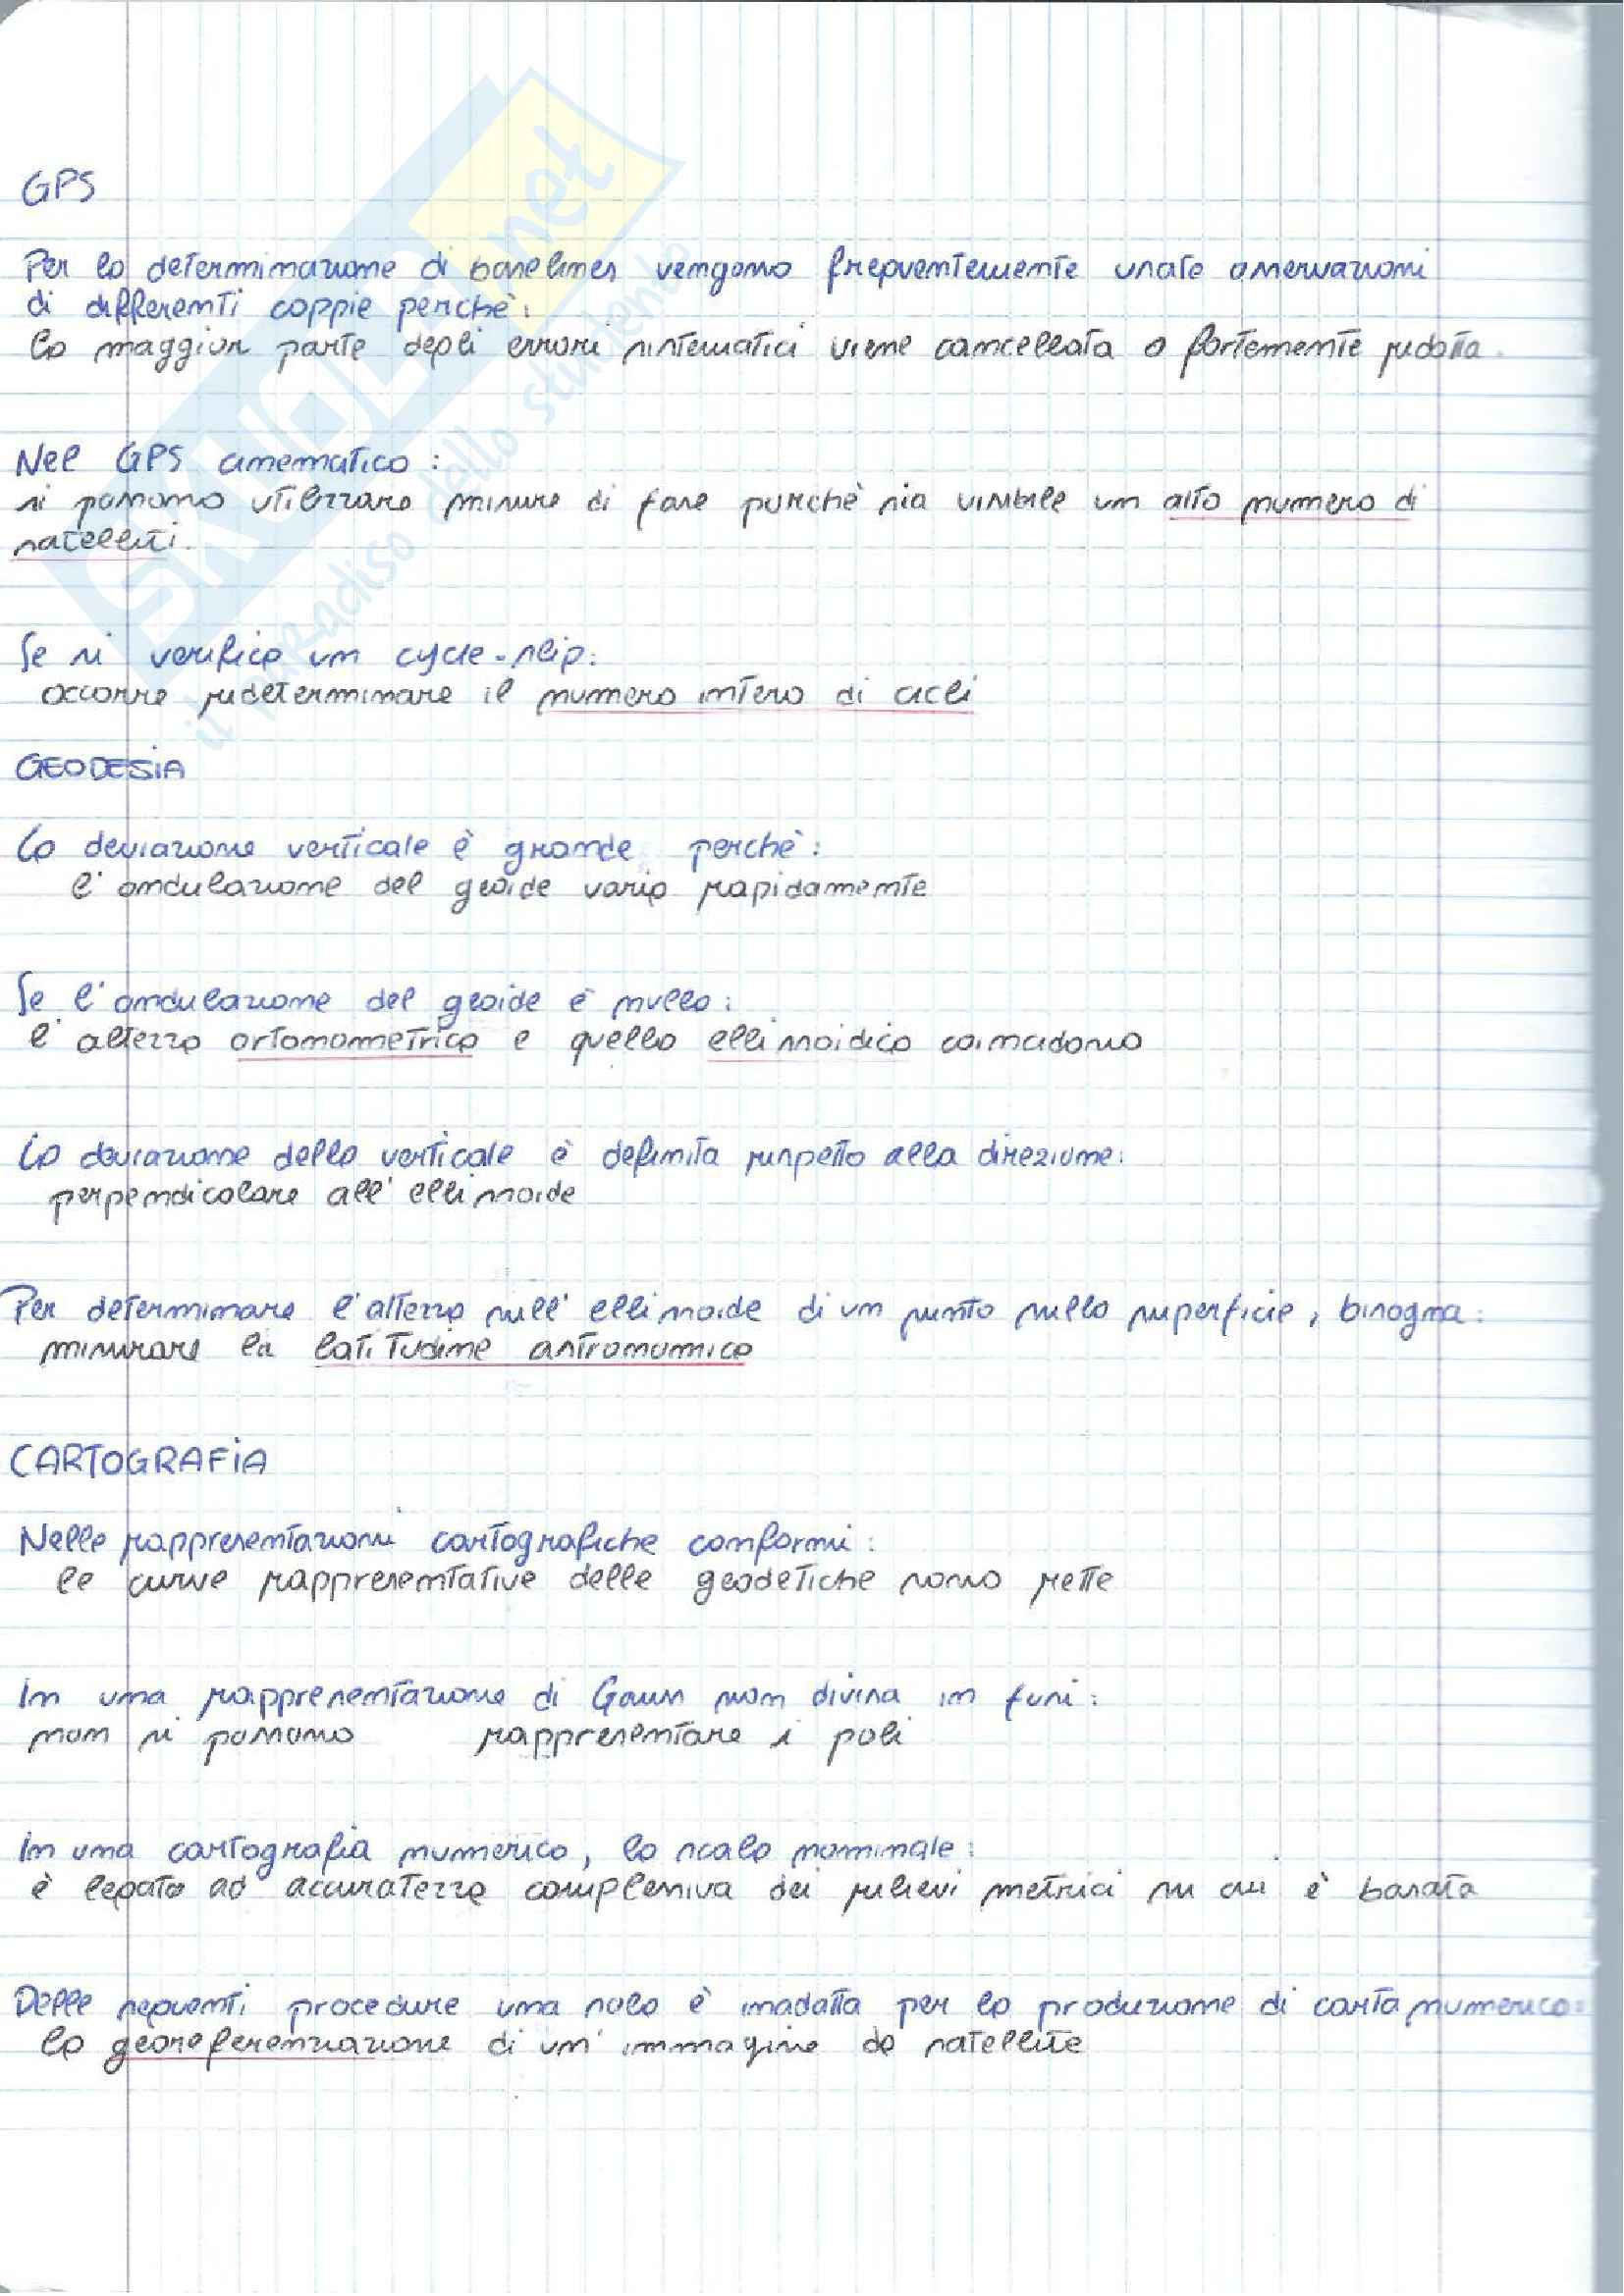 GPS
Per la determinazione di baselines vengono frequentemente usate osservazioni
di differenti coppie perchè:
la maggior parte degli errori sistematici viene cancellata o fortemente ridotta.
Nel GPS cinematico:
si possono utilizzare misure di fase purchè sia visibile un alto numero di
satelliti.
Se si verifica un cycle-slip:
occorre rideterminare il numero intero di cicli
GEODESIA
La deviazione verticale è grande perchè:
l'ondulazione del geoide varia rapidamente
Se l'ondulazione del geoide è nulla:
l'altezza ortonometrica e quella ellissoidica coincidono
La deviazione della verticale è definita rispetto alla direzione:
perpendicolare all'ellissoide
Per determinare l'altezza sull'ellissoide di un punto sulla superficie, bisogna:
misurare la latitudine astronomica
CARTOGRAFIA
Nelle rappresentazioni cartografiche conformi:
le curve rappresentative delle geodetiche sono rette
In una rappresentazione di Gauss non divisa in fusi:
non si possono rappresentare i poli
In una cartografia numerica, la scala nominale:
è legata ad accuratezza complessiva dei rilievi metrici su cui è basata
Delle seguenti procedure una sola è inadatta per la produzione di carta numerica:
la georeferenziazione di un'immagine da satellite
SKUOLA.net
il paradiso dello studente